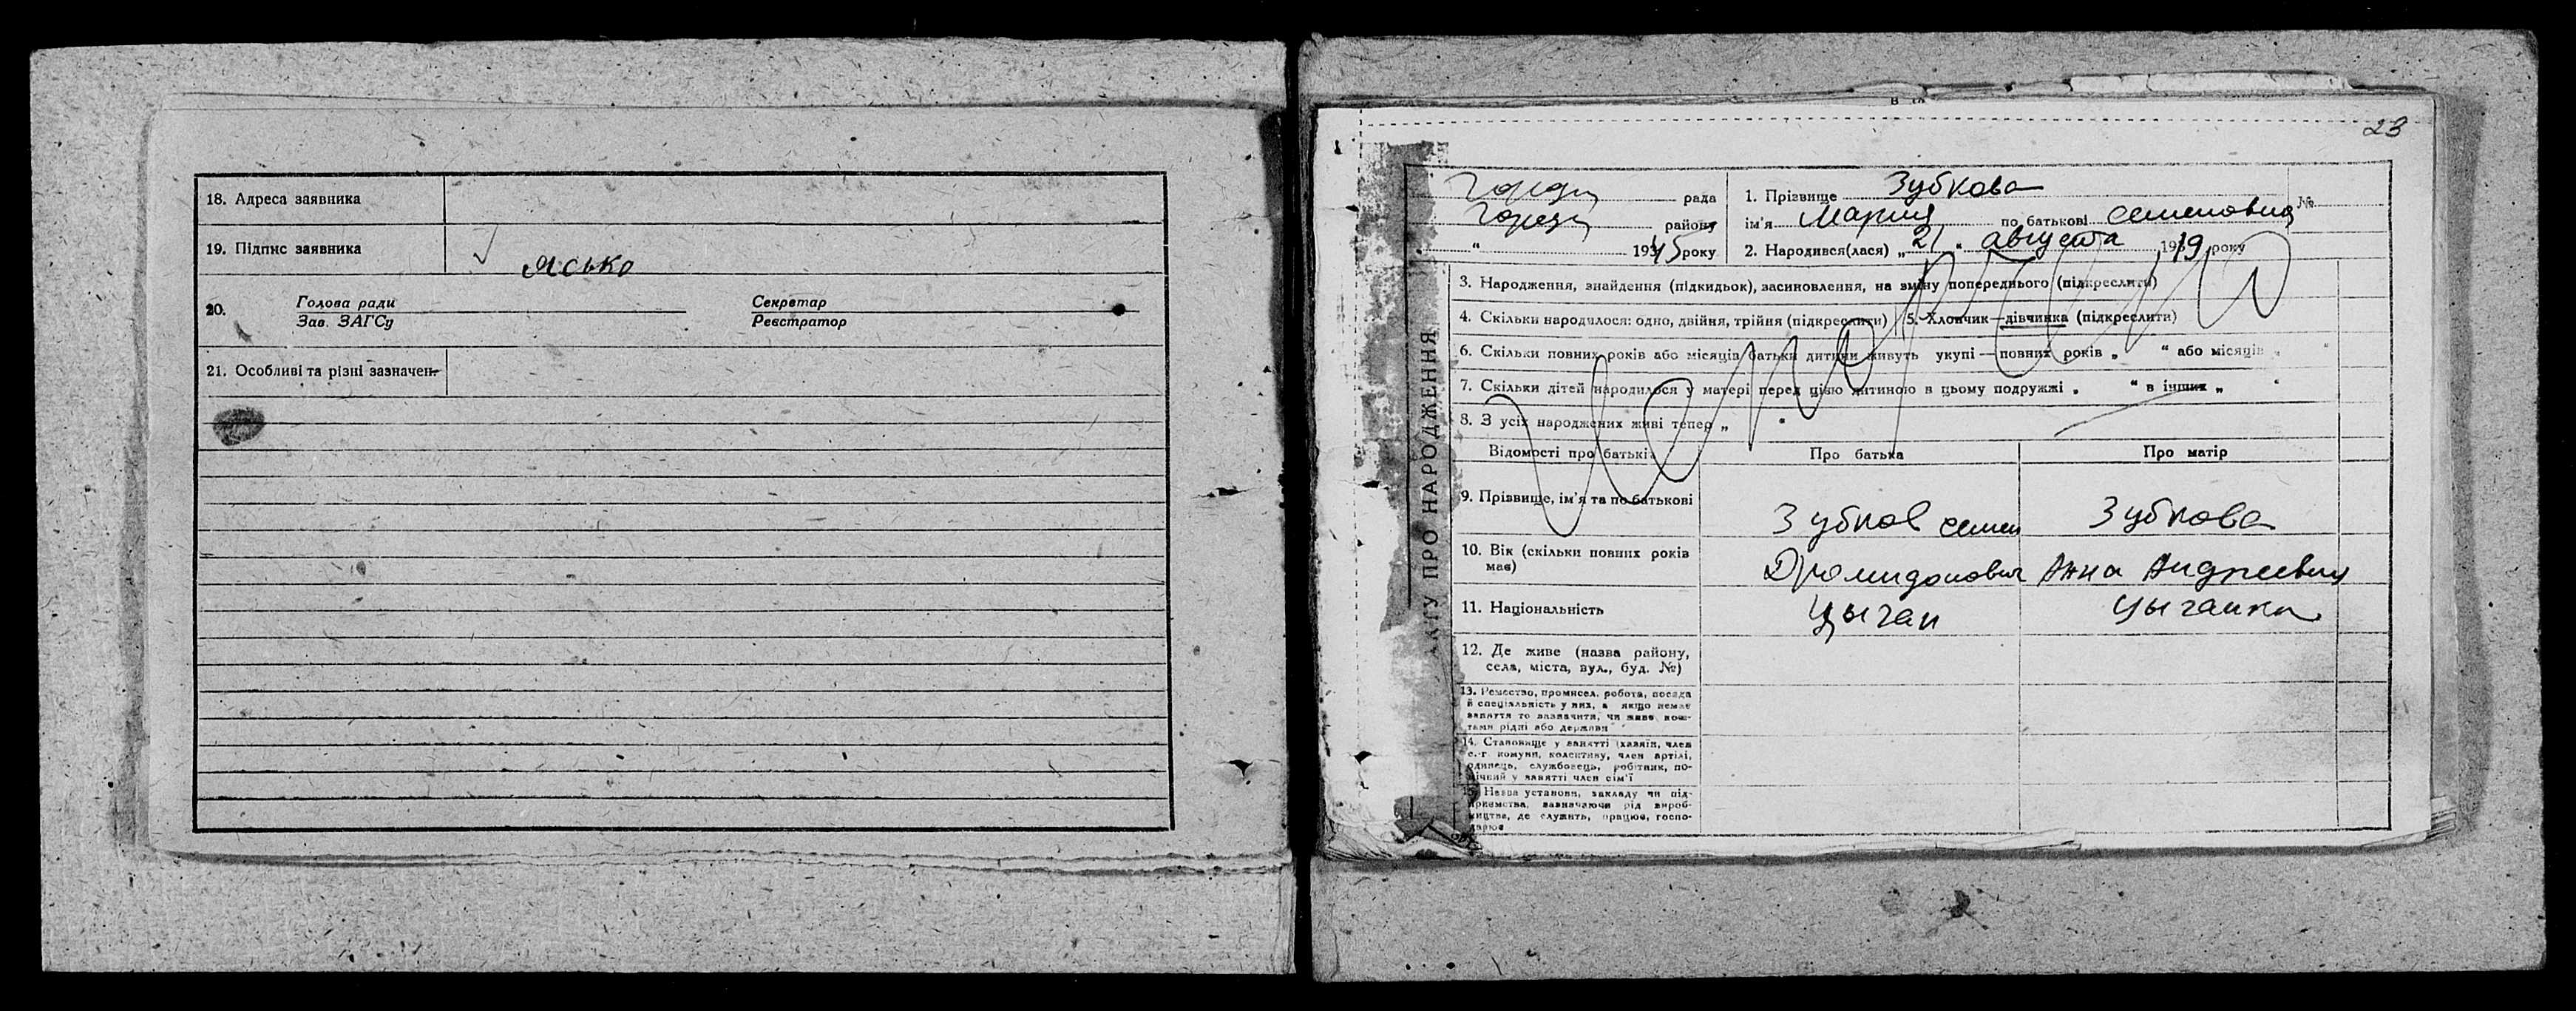 18. Адреса заявника
19. Підпис заявника
Ясько
20. Голова ради Секретар
Зав. ЗАГСу Реєстратор
21. Особливі та різні зазначен-
23
рада
району
"
1945 року
1. Прізвище Зубкова №
ім'я Мария по батькові Семеновна
2. Народився(лася) „21" августа 1919 року
АКТУ ПРО НАРОДЖЕННЯ
3. Народження, знайдення (підкидьок), засиновлення, на зміну попереднього (підкреслити)
4. Скільки народилося: одно, двійня, трійня (підкреслити) 5. Хлопчик—дівчинка (підкреслити)
6. Скільки повних років або місяців батьки дитини живуть укупі—повних років „ " або місяців „ "
7. Скільки дітей народилося у матері перед цією дитиною в цьому подружжі „ " в інших „ "
8. З усіх народжених живі тепер „ "
Відомості про батьків Про батька Про матір
9. Прізвище, ім'я та по батькові
Зубков Семен Зубкова
10. Вік (скільки повних років
має)
Анна Андреевна
11. Національність Цыган Цыганка
12. Де живе (назва району,
села, міста, вул., буд. №)
13. Ремество, промисел, робота, посада
й спеціальність у них, а якщо немає
заняття то зазначити, чи живе кош-
тами рідні або держави
14. Становище у занятті (хазяїн, член
с.-г комуни, колективу, член артілі,
одинець, службовець, робітник, по-
мічний у занятті член сім'ї
15. Назва установи, закладу чи під-
приємства, зазначаючи рід вироб-
ництва, де служить, працює, госпо-
дарює